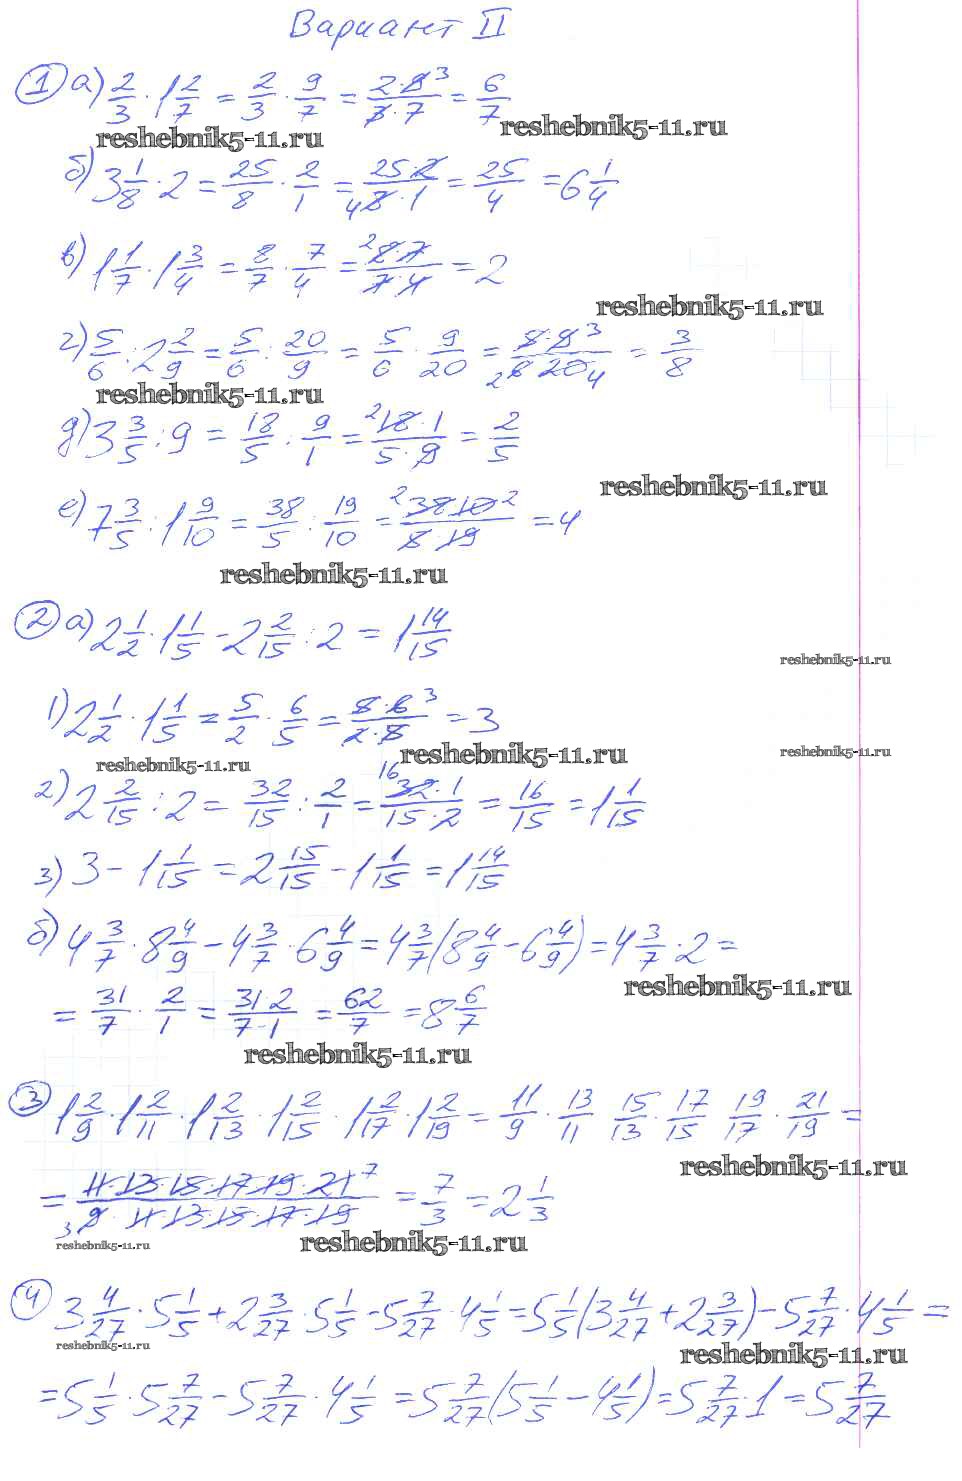 Вариант II
① а) 2/3 · 1 2/7 = 2/3 · 9/7 = 2·9³/3·7 = 6/7
reshebnik5-11.ru reshebnik5-11.ru
б) 3 1/8 · 2 = 25/8 · 2/1 = 25·2/₄8·1 = 25/4 = 6 1/4
в) 1 1/7 · 1 3/4 = 8/7 · 7/4 = ²8·7/7·4 = 2
reshebnik5-11.ru
г) 5/6 : 2 2/9 = 5/6 : 20/9 = 5/6 · 9/20 = 5·9³/₂6 20₄ = 3/8
reshebnik5-11.ru
д) 3 3/5 : 9 = 18/5 : 9/1 = ²18·1/5·9 = 2/5
reshebnik5-11.ru
е) 7 3/5 : 1 9/10 = 38/5 : 19/10 = ²38·10²/5·19 = 4
reshebnik5-11.ru
② а) 2 1/2 · 1 1/5 - 2 2/15 : 2 = 1 14/15
reshebnik5-11.ru
1) 2 1/2 · 1 1/5 = 5/2 · 6/5 = 5·6³/2·5 = 3
reshebnik5-11.ru reshebnik5-11.ru reshebnik5-11.ru
2) 2 2/15 : 2 = 32/15 : 2/1 = ¹⁶32·1/15·2 = 16/15 = 1 1/15
3) 3 - 1 1/15 = 2 15/15 - 1 1/15 = 1 14/15
б) 4 3/7 · 8 4/9 - 4 3/7 · 6 4/9 = 4 3/7 (8 4/9 - 6 4/9) = 4 3/7 · 2 =
reshebnik5-11.ru
= 31/7 · 2/1 = 31·2/7·1 = 62/7 = 8 6/7
reshebnik5-11.ru
③ 1 2/9 · 1 2/11 · 1 2/13 · 1 2/15 · 1 2/17 · 1 2/19 = 11/9 · 13/11 15/13 · 17/15 19/17 · 21/19 =
reshebnik5-11.ru
= 11·13·15·17·19·21⁷/₃9·11·13·15·17·19 = 7/3 = 2 1/3
reshebnik5-11.ru reshebnik5-11.ru
④ 3 4/27 · 5 1/5 + 2 3/27 · 5 1/5 - 5 7/27 · 4 1/5 = 5 1/5 (3 4/27 + 2 3/27) - 5 7/27 · 4 1/5 =
reshebnik5-11.ru reshebnik5-11.ru
= 5 1/5 · 5 7/27 - 5 7/27 · 4 1/5 = 5 7/27 (5 1/5 - 4 1/5) = 5 7/27 · 1 = 5 7/27